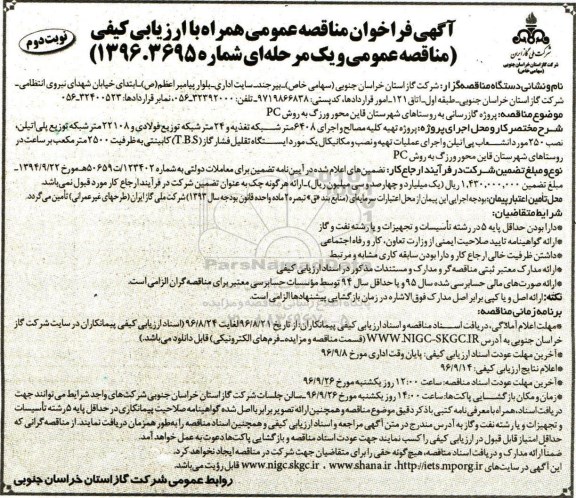 آگهی فراخوان مناقصه عمومی همراه با ارزیابی کیفی
نوبت دوم
(مناقصه عمومی و یک مرحله‌ای شماره ۱۳۹۶.۳۶۹۵)
شرکت ملی گاز ایران
شرکت گاز استان خراسان جنوبی
(سهامی خاص)
نام و نشانی دستگاه مناقصه‌گزار: شرکت گاز استان خراسان جنوبی (سهامی خاص)ـ بیرجند ـ سایت اداری ـ بلوار پیامبر اعظم(ص)ـ ابتدای خیابان شهدای نیروی انتظامی ـ
شرکت گاز استان خراسان جنوبی ـ طبقه اول ـ اتاق ۱۲۱ ـ امور قراردادها، کدپستی: ۹۷۱۹۸۶۶۸۳۸ ـ تلفن: ۳۲۳۹۲۰۰۰ـ۰۵۶، نمابر قراردادها: ۳۲۴۰۰۵۲۳ـ۰۵۶
موضوع مناقصه: پروژه گازرسانی به روستاهای شهرستان قاین محور ورزگ به روش PC
شرح مختصر کار و محل اجرای پروژه: پروژه تهیه کلیه مصالح و اجرای ۶۴۰۸ متر شبکه تغذیه و ۲۴ متر شبکه توزیع فولادی و ۲۲۱۰۸ متر شبکه توزیع پلی‌اتیلن،
نصب ۲۵۰ مورد انشعاب پی‌اتیلن و اجرای عملیات تهیه و نصب و مکانیکال یک مورد ایستگاه تقلیل فشار گاز (T.B.S) کابینتی به ظرفیت ۲۵۰۰ متر مکعب بر ساعت در
روستاهای شهرستان قاین محور ورزگ به روش PC
نوع و مبلغ تضمین شرکت در فرآیند ارجاع کار: تضمین‌های اعلام شده در آیین‌نامه تضمین برای معاملات دولتی به شماره ۱۲۳۴۰۲/ت۵۰۶۵۹هـ مورخ ۱۳۹۴/۹/۲۲ـ
مبلغ تضمین ۱.۴۳۰.۰۰۰.۰۰۰ ریال (یک میلیارد و چهارصد و سی میلیون ریال)ـ ارائه هرگونه چک به عنوان تضمین شرکت در فرآیند ارجاع کار مورد قبول نمی‌باشد
محل تأمین اعتبار پیمان: بودجه اجرایی این پیمان از محل اعتبارات سرمایه‌ای (منابع بند ق، تبصره ۲ ماده واحده قانون بودجه سال ۱۳۹۳) شرکت ملی گاز ایران (طرح‎های غیر عمرانی) تأمین می‌گردد.
شرایط متقاضیان:
* دارا بودن حداقل پایه ۵ در رشته تأسیسات و تجهیزات و یا رشته نفت و گاز
* ارائه گواهینامه تایید صلاحیت ایمنی از وزارت تعاون، کار و رفاه اجتماعی
* داشتن ظرفیت خالی ارجاع کار و دارا بودن سابقه کاری مشابه و مرتبط
* ارائه مدارک معتبر ثبتی مناقصه‌گر و مدارک و مستندات مذکور در اسناد ارزیابی کیفی
* ارائه صورت‌های مالی حسابرسی شده سال ۹۵ و یا حداقل سال ۹۴ توسط مؤسسات حسابرسی معتبر برای مناقصه‌گران الزامی است.
نکته: ارائه اصل و یا کپی برابر اصل مدارک فوق‌الاشاره در زمان بازگشایی پیشنهادها الزامی است.
برنامه زمانی مناقصه:
* مهلت اعلام آمادگی، دریافت اسناد مناقصه و اسناد ارزیابی کیفی پیمانکاران: از تاریخ ۹۶/۸/۲۱ لغایت ۹۶/۸/۲۴ (اسناد ارزیابی کیفی پیمانکاران در سایت شرکت گاز
خراسان جنوبی به آدرس WWW.NIGC-SKGC.IR (قسمت مناقصه و مزایده ـ فرم‌های الکترونیکی) قابل دانلود می‌باشد.)
* آخرین مهلت عودت اسناد ارزیابی کیفی: پایان وقت اداری مورخ ۹۶/۹/۸
* اعلام نتایج ارزیابی کیفی: ۹۶/۹/۱۴
* آخرین مهلت عودت اسناد مناقصه: ساعت ۱۲:۰۰ روز یکشنبه مورخ ۹۶/۹/۲۶
* زمان و مکان بازگشایی پاکت‌ها: ساعت ۱۴:۰۰ روز یکشنبه مورخ ۹۶/۹/۲۶ ـ سالن جلسات شرکت گاز استان خراسان جنوبی شرکت‌های واجد شرایط می‌توانند جهت
دریافت اسناد، همراه با معرفی‌نامه کتبی با ذکر دقیق موضوع مناقصه و همچنین ارائه تصویر برابر با اصل شده گواهینامه صلاحیت پیمانکاری در حداقل پایه ۵ رشته تأسیسات
و تجهیزات و یا رشته نفت و گاز به آدرس مندرج در متن آگهی مراجعه و اسناد ارزیابی کیفی و همچنین اسناد مناقصه را به‌طور همزمان دریافت نمایند. از مناقصه‌گرانی که
حداقل امتیاز قابل قبول در ارزیابی کیفی را کسب نمایند جهت عودت اسناد مناقصه و بازگشایی پاکت‌ها دعوت به عمل خواهد آمد.
ضمناً ارائه مدارک و دریافت اسناد مناقصه، هیچ‌گونه حقی را برای متقاضیان جهت شرکت در مناقصه ایجاد نخواهد کرد.
این آگهی در سایت‌های http://iets.mporg.ir، www.shana.ir، www.nigc.skgc.ir قابل رؤیت می‌باشد.
روابط عمومی شرکت گاز استان خراسان جنوبی